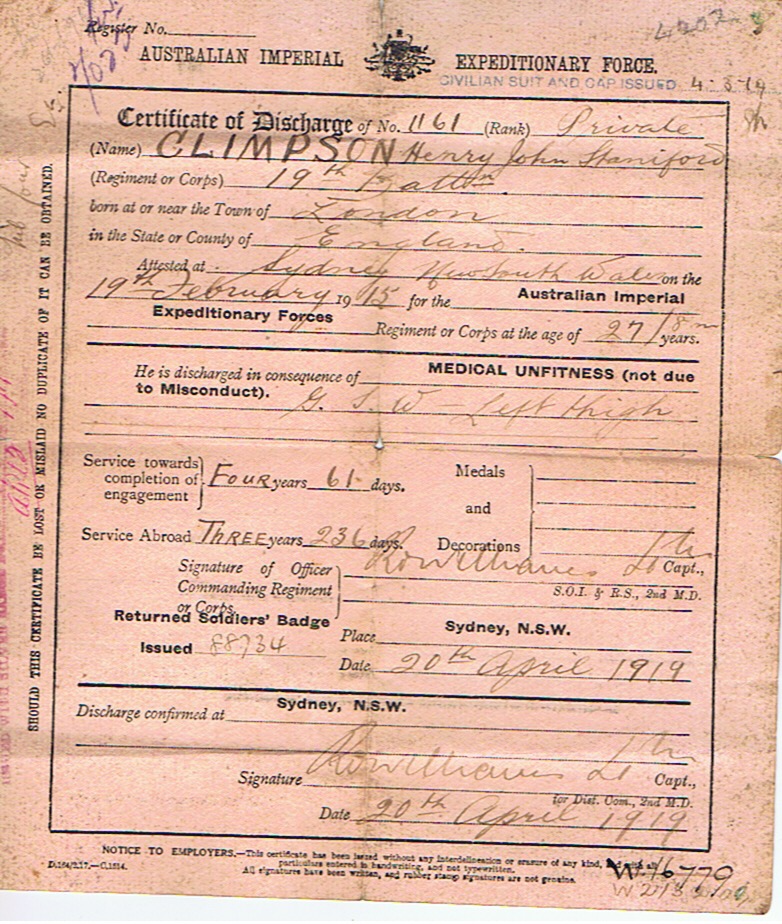 Register No.
4202
AUSTRALIAN IMPERIAL EXPEDITIONARY FORCE.
CIVILIAN SUIT AND CAP ISSUED 4-3-19
Certificate of Discharge of No. 1161 (Rank) Private
(Name) CLIMPSON Henry John Staniford
(Regiment or Corps) 19th Battn
born at or near the Town of London
in the State or County of England.
Attested at Sydney New South Wales on the
19th February 1915 for the Australian Imperial
Expeditionary Forces Regiment or Corps at the age of 27/8 m years.
He is discharged in consequence of MEDICAL UNFITNESS (not due
to Misconduct). G. S. W Left thigh
Service towards completion of engagement FOUR years 61 days.
Medals and Decorations
Service Abroad THREE years 236 days.
Signature of Officer Commanding Regiment or Corps. Lt Capt.,
S.O.I. & R.S., 2nd M.D.
Returned Soldiers' Badge
Issued 88734
Place Sydney, N.S.W.
Date 20th April 1919
Discharge confirmed at Sydney, N.S.W.
Signature Lt Capt.,
for Dist. Com., 2nd M.D.
Date 20th April 1919
NOTICE TO EMPLOYERS.—This certificate has been issued without any interdelineation or erasure of any kind, and with all
particulars entered in handwriting, and not typewritten.
All signatures have been written, and rubber stamp signatures are not genuine.
D.164/2.17.—C.1514.
W.16770
SHOULD THIS CERTIFICATE BE LOST OR MISLAID NO DUPLICATE OF IT CAN BE OBTAINED.